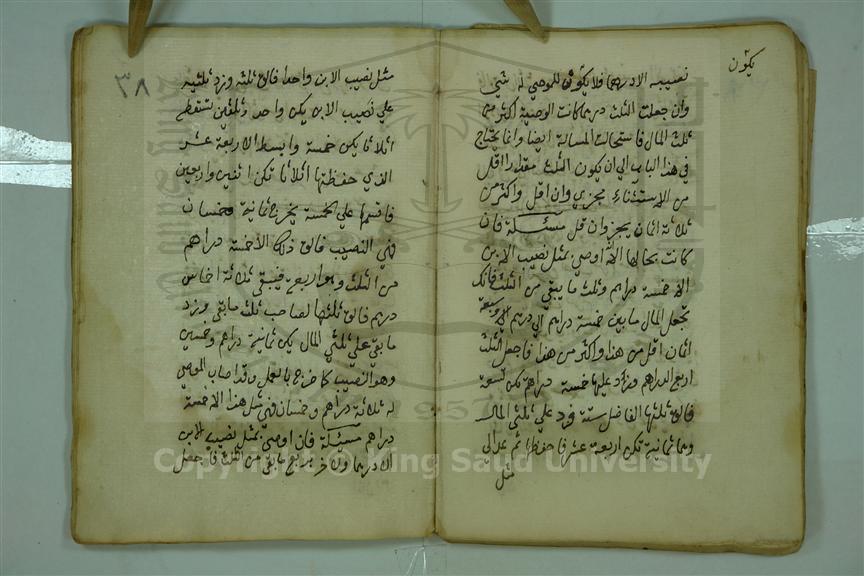 يكون
نصيبه الا درهما فلا يكون للموصى له شيئ
وان جعلت الثلث درهما كانت الوصية اكثر من
ثلث المال فاستحالت المسالة ايضا وانما يحتاج
في هذا الباب الى ان يكون الثلث مقدارا اقل
من الاستثناء مجزي وان اقل واكثر من
ثلاثة اثمان يجز وان قل مسئلة فان
كانت بحالها الا انه اوصى بمثل نصيب الابن
الا خمسة دراهم وثلث ما يبقى من الثلث فانك
تجعل المال ما بين خمسة دراهم الى درهم
اثمان اقل من هذا واكثر من هذا فاجعل الثلث
اربع الدراهم وزاد عليها خمسة دراهم تكن تسعة
فالق ثلثها الفاضل ستة فزد على ثلثي المال
وهما ثمانية تكن اربعة عشر فاحفظها ثم عد الى
مثل
٣٨
مثل نصيب الابن واحدا فالق ثلثه وزد ثلثيه
على نصيب الابن يكن واحد وثلثين
اثلاثا يكن خمسة وابسط الاربعة عشر
الذي حفظتها اثلاثا تكن اثنين واربعين
فاقسمها على الخمسة يخرج ثمانية وخمسان
فهي النصيب فالق ذلك الا خمسة دراهم
من الثلث وهو اربعة فيبقى ثلاثة اخماس
درهم فالق ثلثها لصاحب ثلث ما بقى وزد
ما بقى على ثلثي المال يكن ثمانية دراهم وخمسين
وهو النصيب كما خرج بالعمل وقد اصاب الموصى
له ثلاثة دراهم وخمسان فهي مثل هذا الا خمسة
دراهم مسئلة فان اوصى بمثل نصيب الابن
الا درهما ولاخر بربع ما بقى من الثلث فاجعل
Copyright © King Saud University
1957